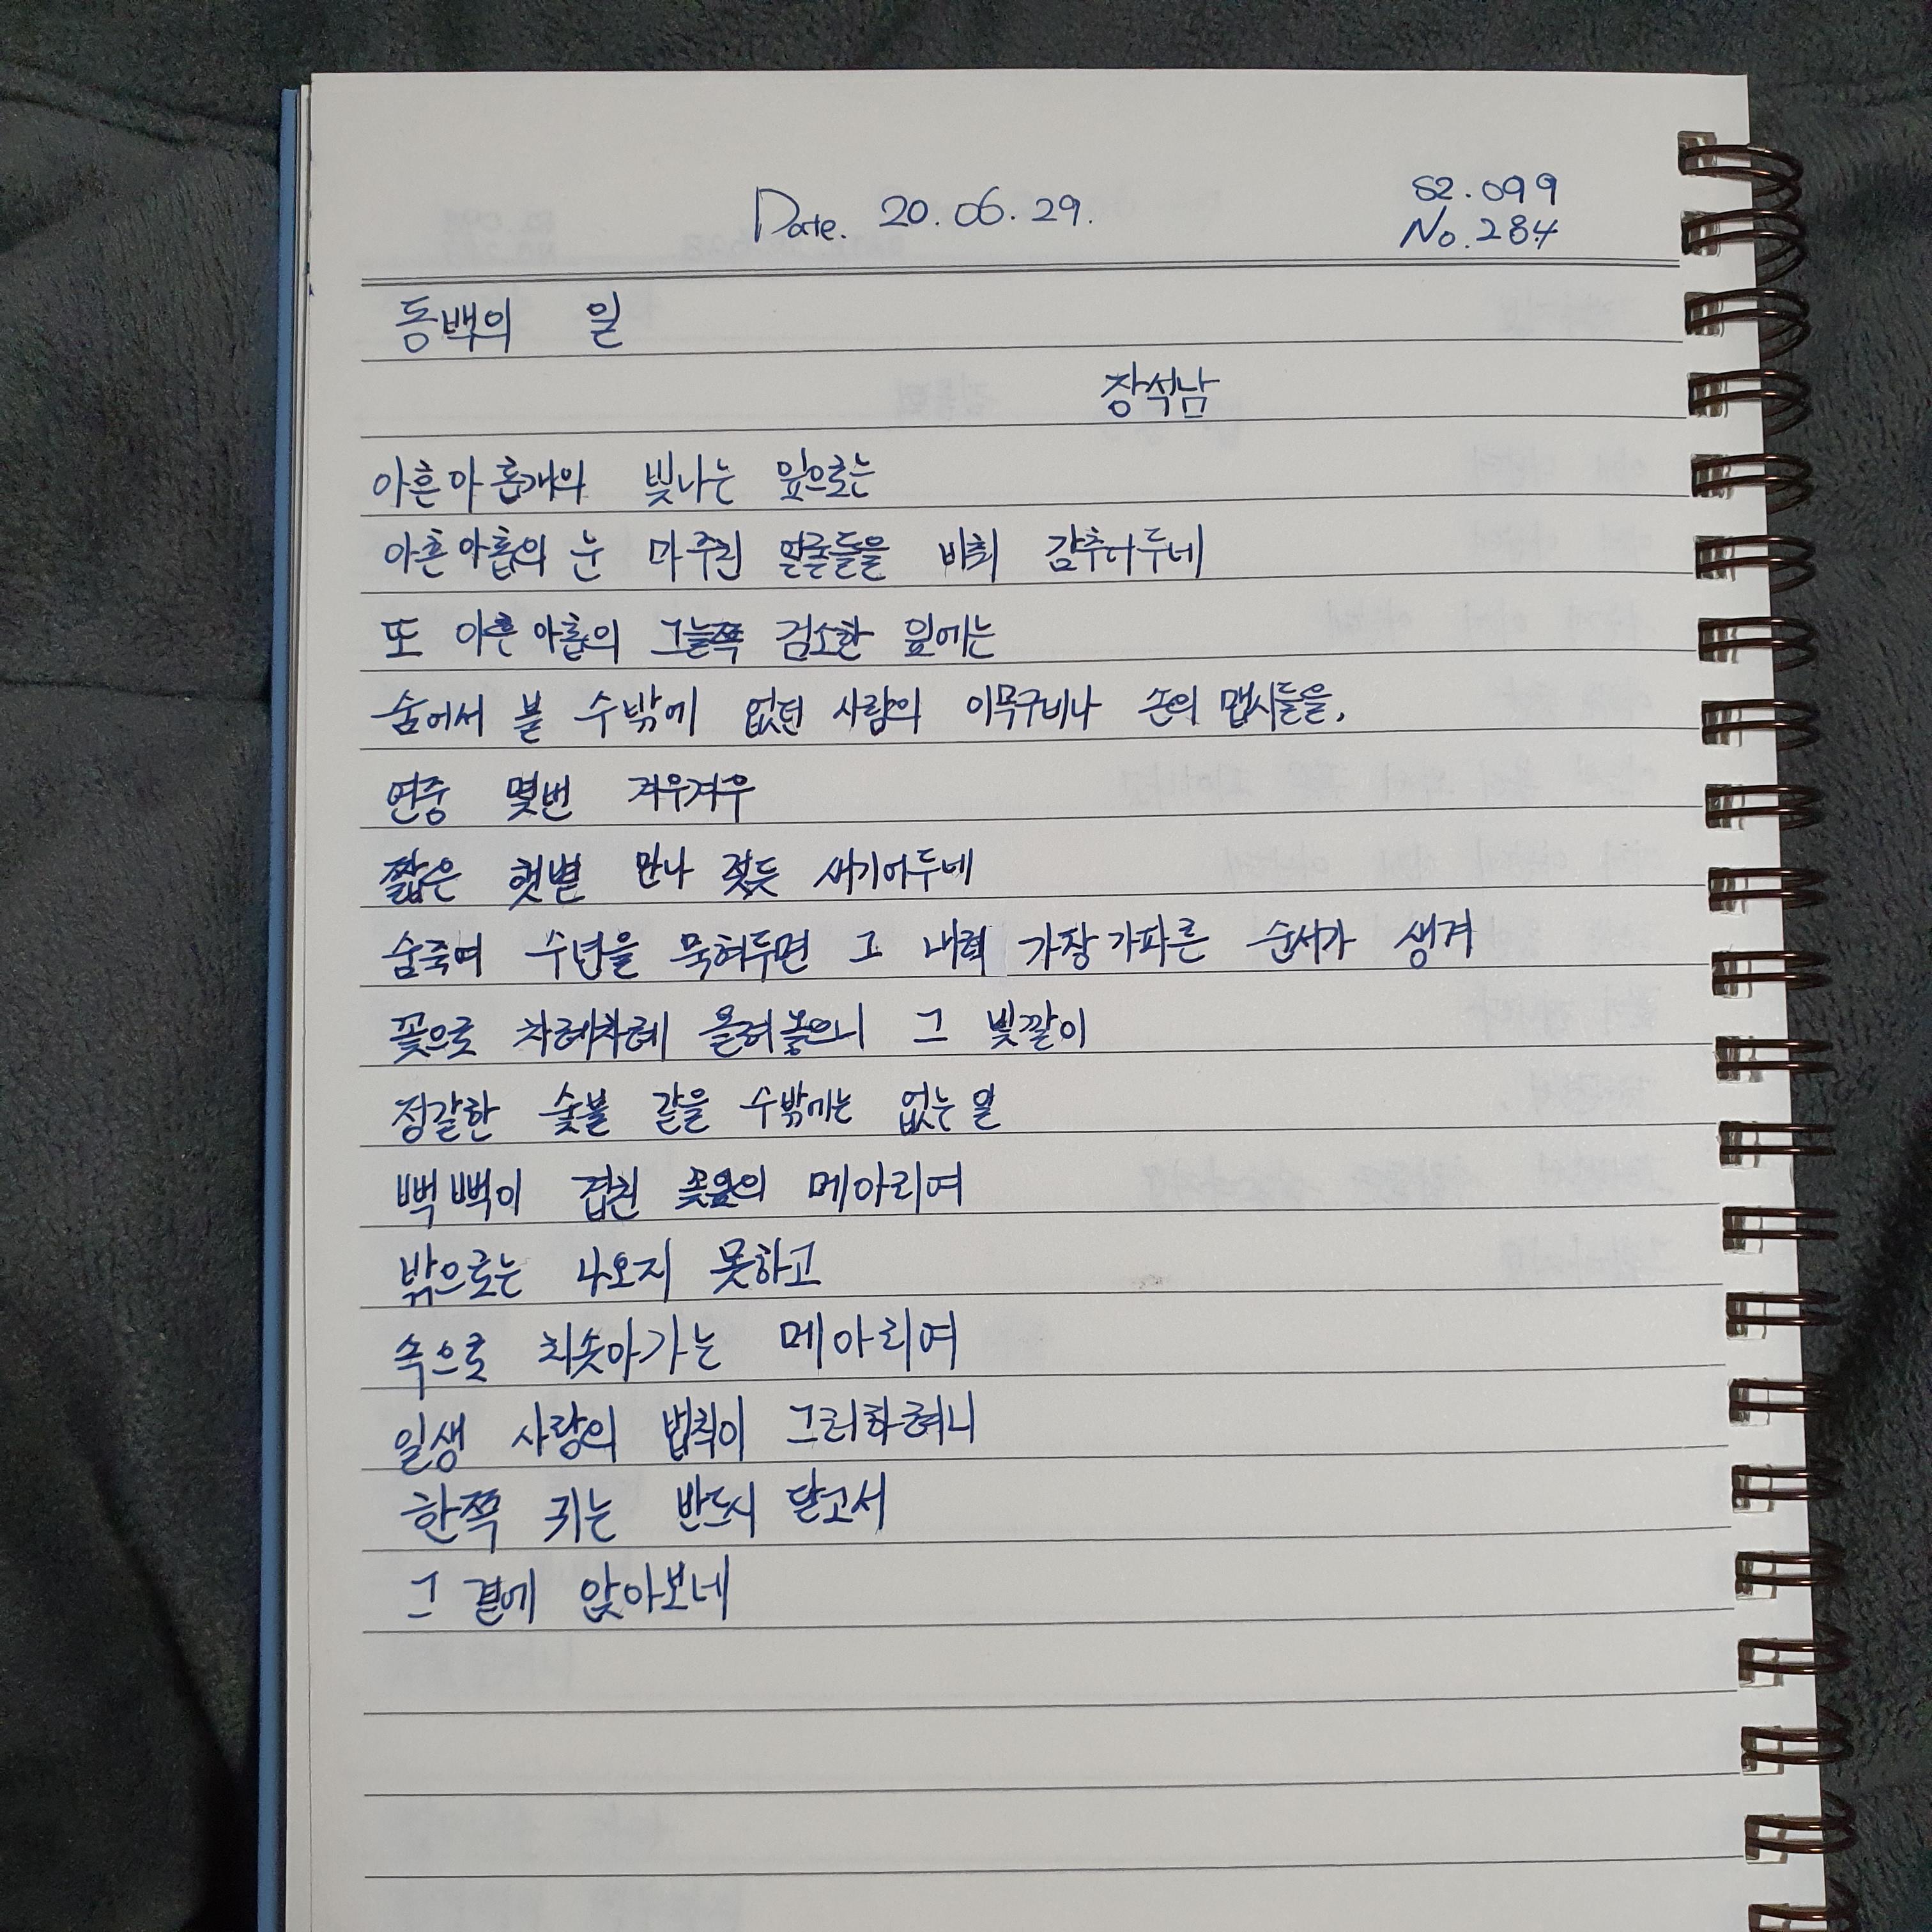 Date. 20.06.29.
S2.099
No.284
동백의 일
장석남
아흔아홉개의 빛나는 잎으로는
아흔아홉의 눈 마주친 얼굴들을 비춰 감추어두네
또 아흔아홉의 그늘쪽 검소한 잎에는
숨어서 볼 수밖에 없던 사람의 이목구비나 손의 맵시들을,
연중 몇번 겨우겨우
짧은 햇볕 만나 젖듯 새기어두네
숨죽여 수년을 묵혀두면 그 내력 가장 가파른 순서가 생겨
꽃으로 차례차례 올려놓으니 그 빛깔이
정갈한 숯불 같을 수밖에는 없는 일
빽빽이 겹친 꽃잎의 메아리여
밖으로는 나오지 못하고
속으로 치솟아가는 메아리여
일생 사랑의 법칙이 그러하려니
한쪽 귀는 반드시 닫고서
그 곁에 앉아보네